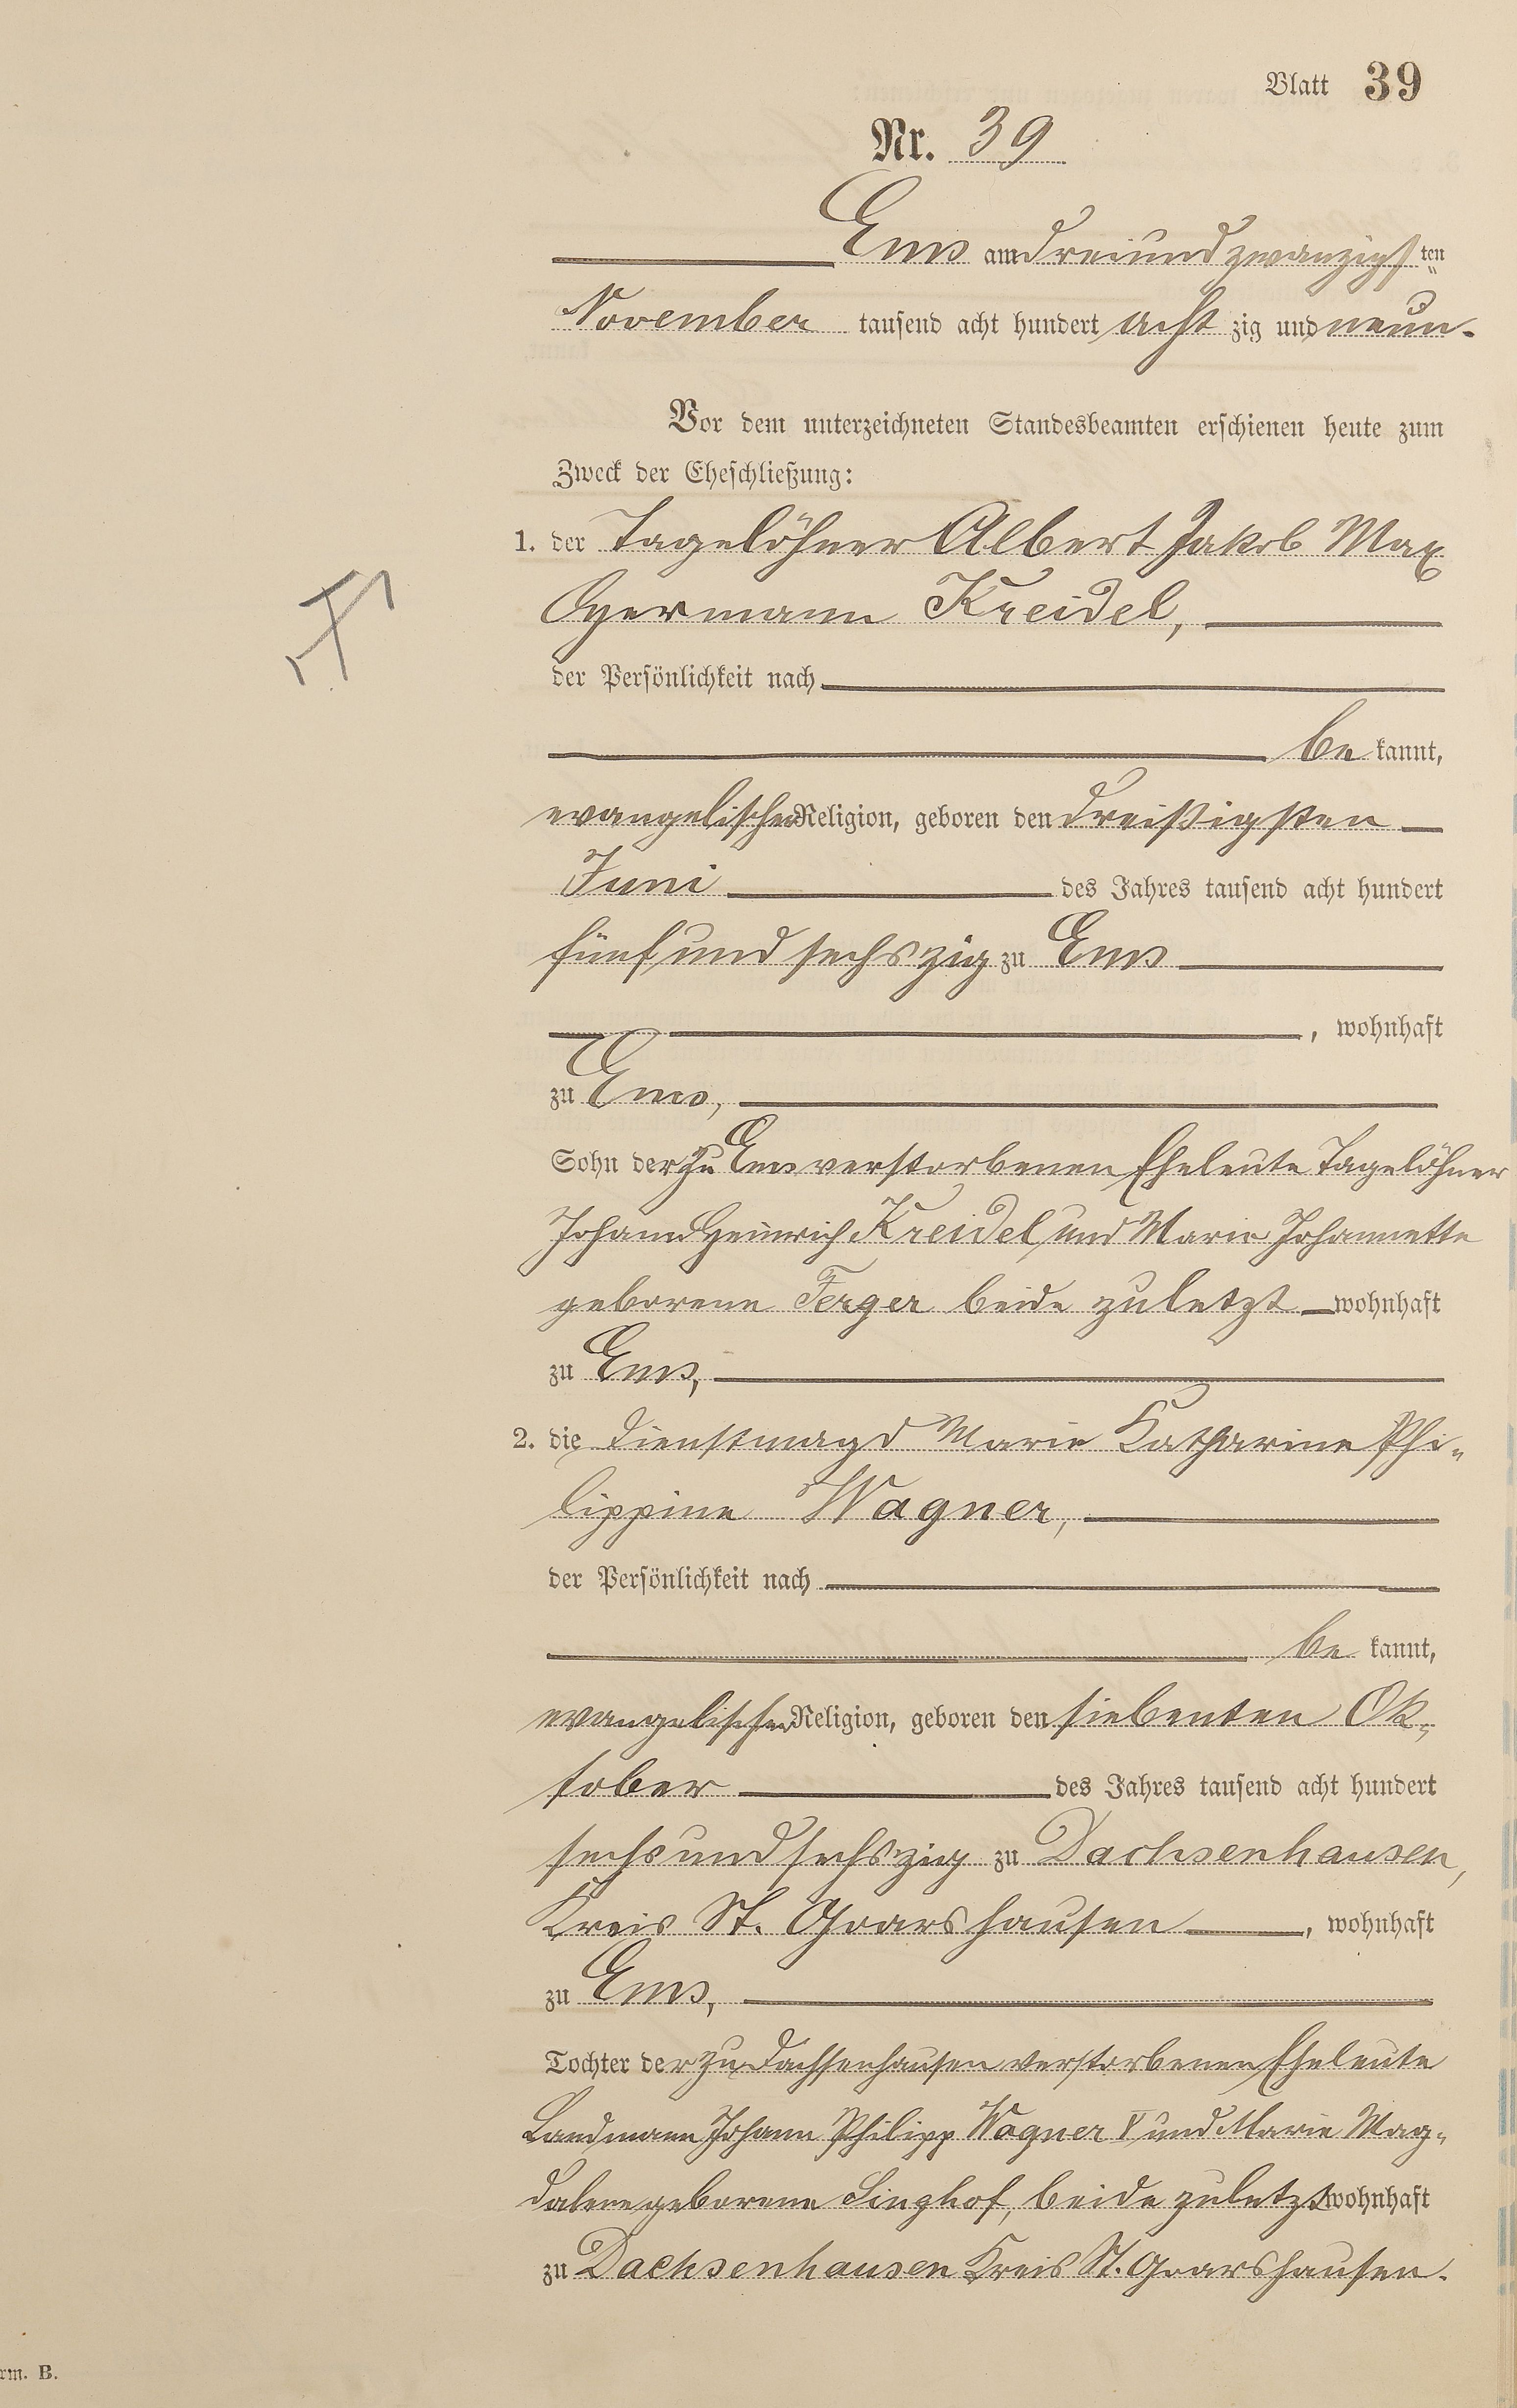 Blatt 39
Nr. 39
Ems am dreiundzwanzigsten
November tausend acht hundert achtzig und neun.
Vor dem unterzeichneten Standesbeamten erschienen heute zum
Zweck der Eheschließung:
1. der Tagelöhner Albert Jakob Max
Hermann Kreidel,
der Persönlichkeit nach
be kannt,
evangelischer Religion, geboren den dreißigsten
Juni des Jahres tausend acht hundert
fünfundsechszig zu Ems
, wohnhaft
zu Ems,
Sohn der zu Ems verstorbenen Eheleute Tagelöhner
Johann Heinrich Kreidel und Marie Johannette
geborene Ferger beide zuletzt wohnhaft
zu Ems,
2. die Dienstmagd Marie Katharine Phi-
lippine Wagner,
der Persönlichkeit nach
be kannt,
evangelischer Religion, geboren den siebenten Ok-
tober des Jahres tausend acht hundert
sechsundsechszig zu Dachsenhausen,
Kreis St. Goarshausen, wohnhaft
zu Ems,
Tochter der zu Dachsenhausen verstorbenen Eheleute
Landmann Johann Philipp Wagner V und Marie Mag-
dalene geborene Singhof, beide zuletzt wohnhaft
zu Dachsenhausen Kreis St. Goarshausen.
rm. B.